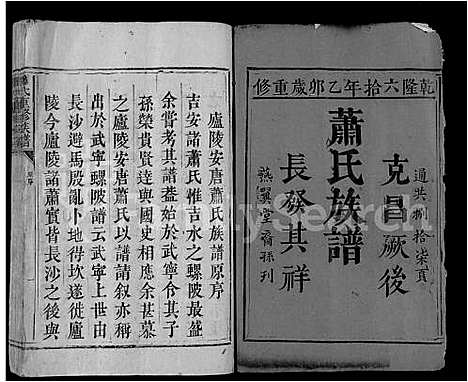 乾隆六拾年乙卯歲重修
通共捌拾柒頁
克昌厥後
蕭氏族譜
長發其祥
燕翼堂裔孫刊
廬陵安唐蕭氏族譜原序
吉安諸蕭氏惟吉水之螺陂最盛
余嘗考其譜葢始於武寧令其子
孫榮貴賢達與國史相應余甚慕
之廬陵安唐蕭氏以譜請叙亦稱
出於武寧螺陂譜云武寧上世由
長沙避馬殷亂卜地得坎遂徙廬
陵今廬陵諸蕭實皆長沙之後與
蕭氏重修族譜
FamilySearch